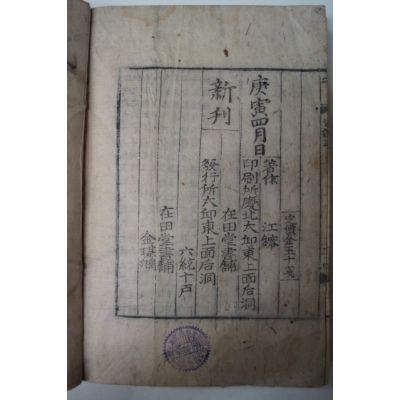 定價金五十戔
庚寅四月日
江鎔
印刷所慶北大邱東上面后洞
在田堂書鋪
新刊
發行所大邱東上面后洞
六統十戶
在田堂書鋪
金璂鴻